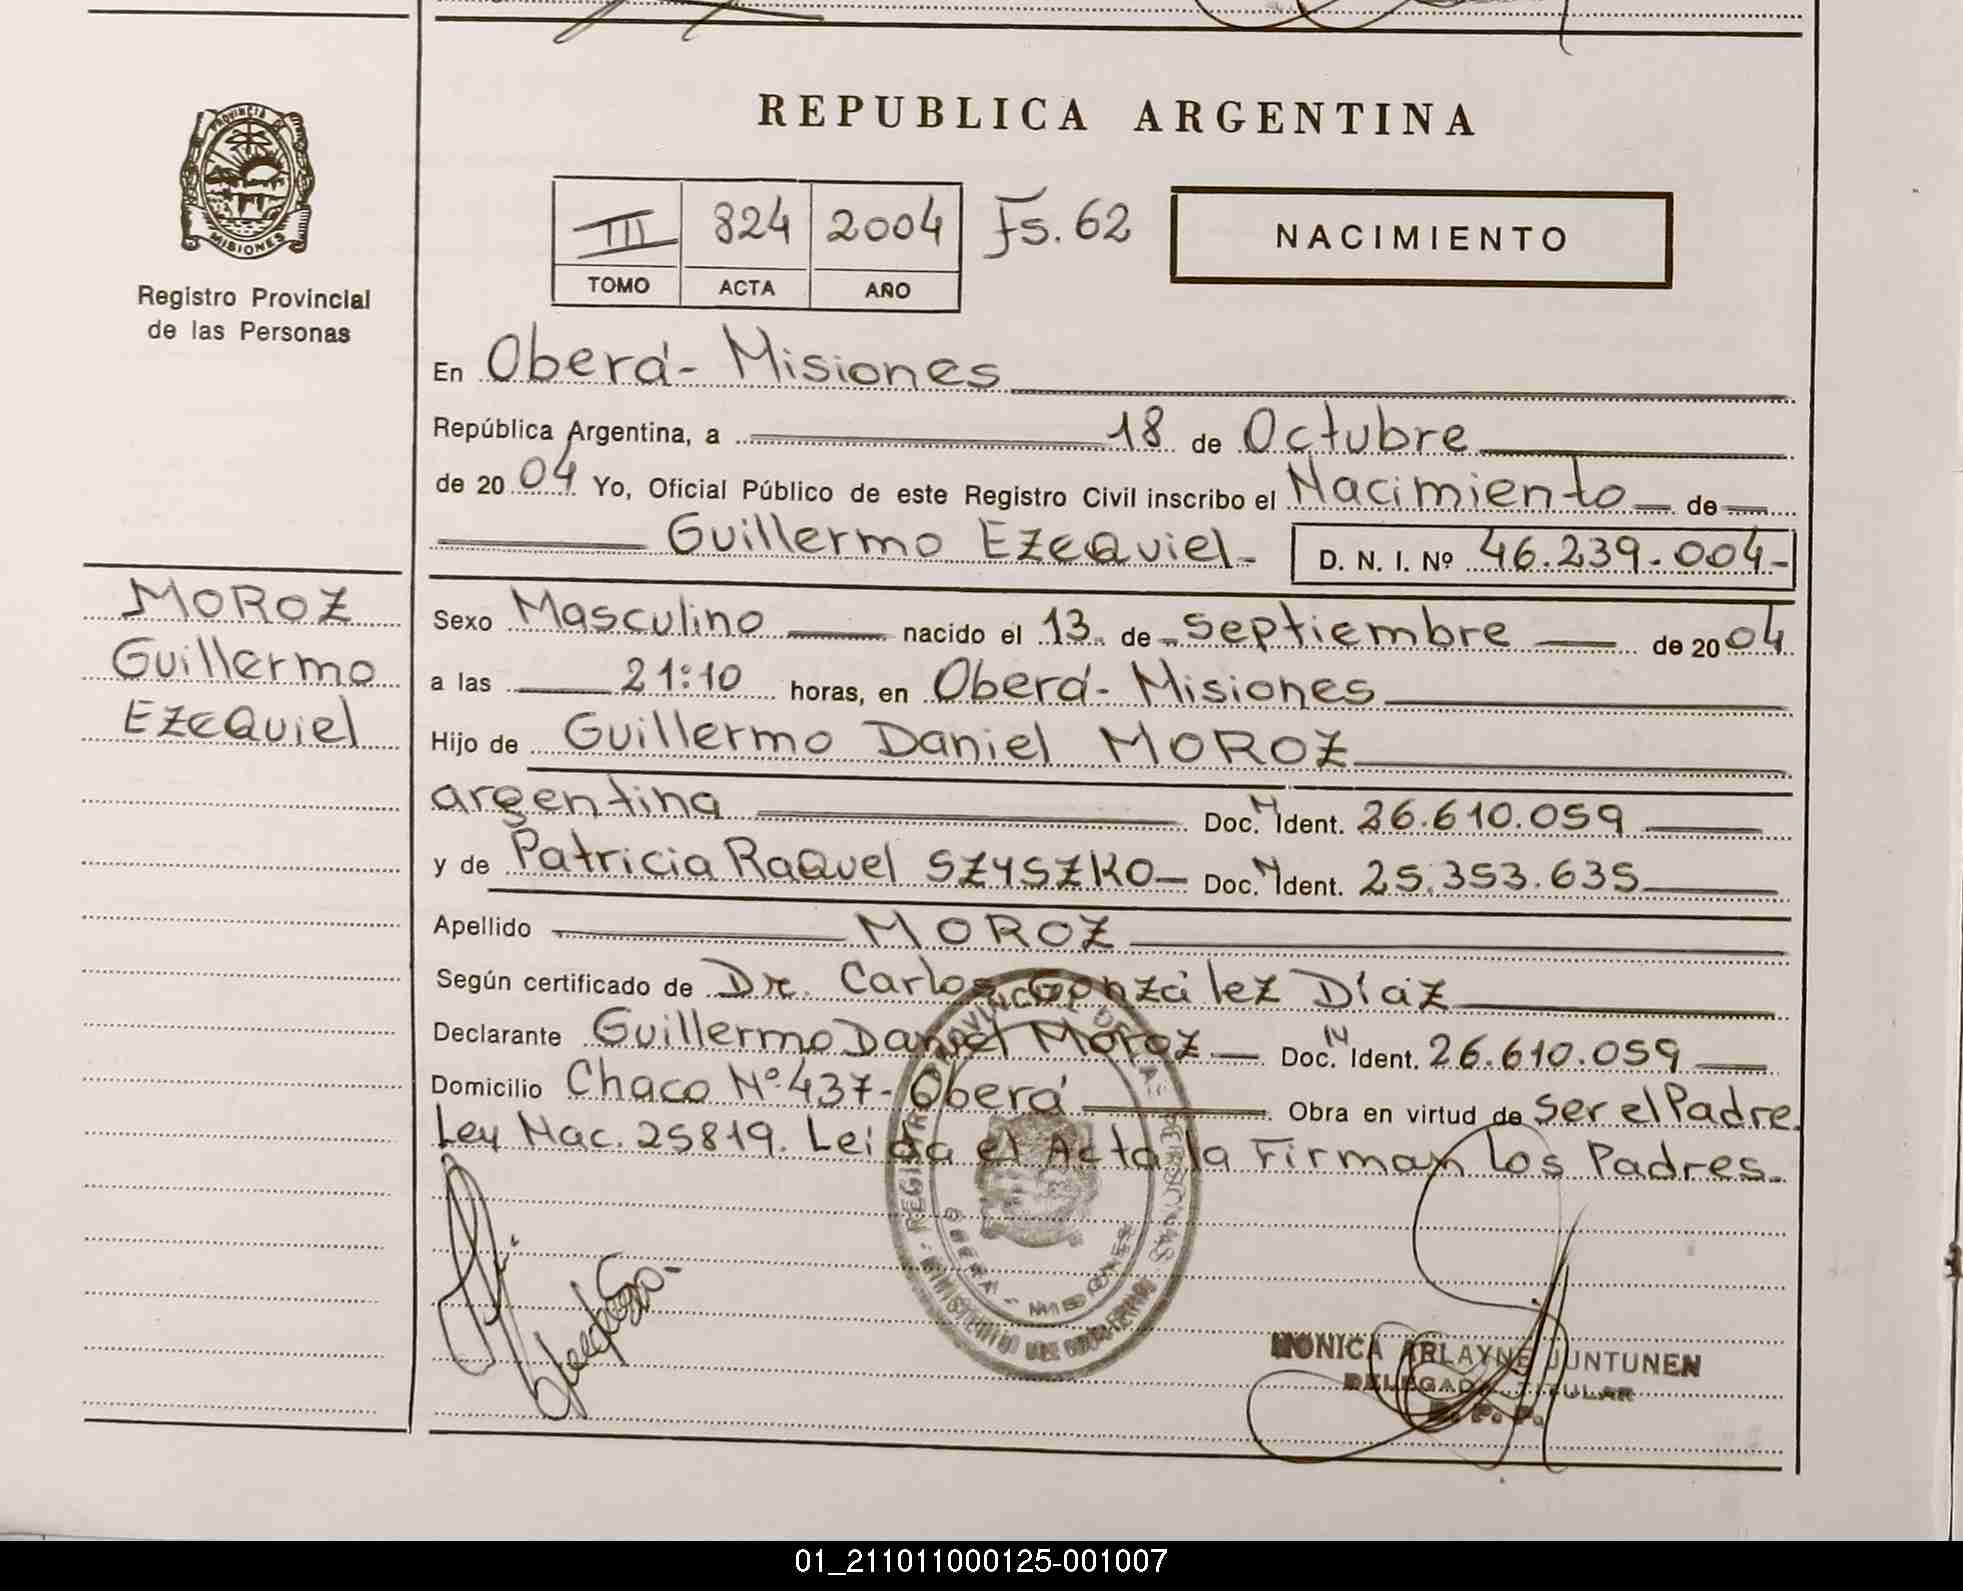 REPUBLICA ARGENTINA
PROVINCIA DE
MISIONES
Registro Provincial
de las Personas
III 824 2004 Fs. 62
TOMO ACTA AÑO
NACIMIENTO
En Oberá - Misiones
República Argentina, a 18 de Octubre
de 2004 Yo, Oficial Público de este Registro Civil inscribo el Nacimiento de
Guillermo Ezequiel - D. N. I. Nº 46.239.004-
MOROZ
Guillermo
Ezequiel
Sexo Masculino nacido el 13 de septiembre de 2004
a las 21:10 horas, en Oberá - Misiones
Hijo de Guillermo Daniel MOROZ
argentina Doc. N. Ident. 26.610.059
y de Patricia Raquel SZYSZKO - Doc. N. Ident. 25.353.635
Apellido MOROZ
Según certificado de Dr. Carlos González Díaz
Declarante Guillermo Daniel Moroz Doc. N. Ident. 26.610.059
Domicilio Chaco Nº 437 - Oberá Obra en virtud de ser el Padre.
Ley Nac. 25819. Leida el Acta la Firman Los Padres.
REGISTRO PROVINCIAL DE LAS PERSONAS
OBERA - MISIONES
MINISTERIO DE GOBIERNO
MONICA ARLAYNE JUNTUNEN
DELEGADA TITULAR
R. P. P.
01_211011000125-001007